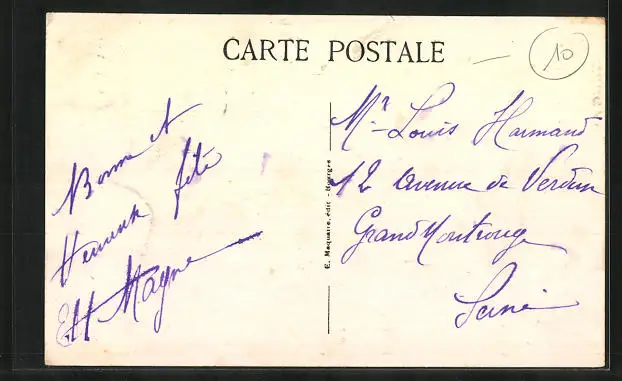 CARTE POSTALE
10
Bonne et
heureuse fête
Magne
E. Maquaire, édit - Bourges
Mr Louis Harmand
12 avenue de Verdun
Grand Montrouge
Seine